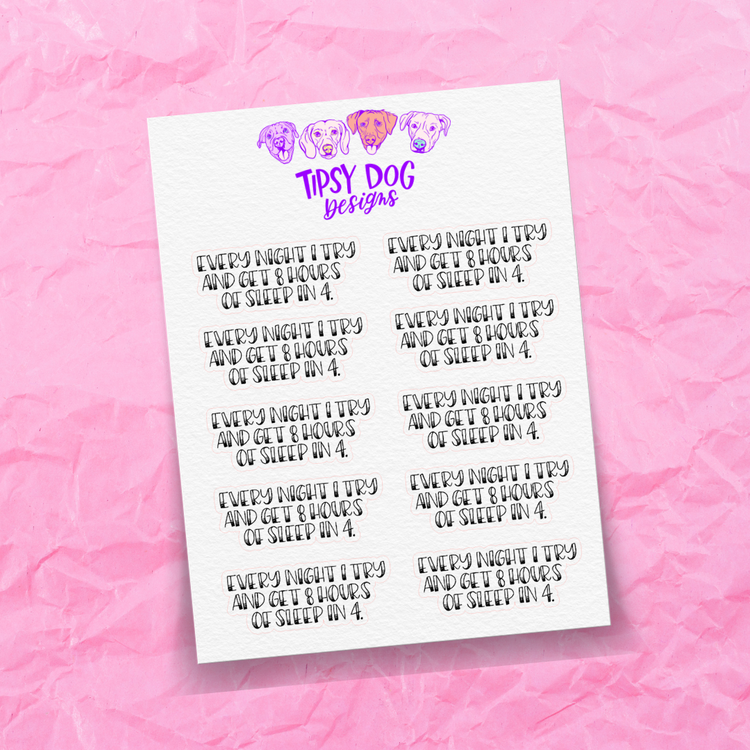 TIPSY DOG
Designs
EVERY NIGHT I TRY
AND GET 8 HOURS
OF SLEEP IN 4.
EVERY NIGHT I TRY
AND GET 8 HOURS
OF SLEEP IN 4.
EVERY NIGHT I TRY
AND GET 8 HOURS
OF SLEEP IN 4.
EVERY NIGHT I TRY
AND GET 8 HOURS
OF SLEEP IN 4.
EVERY NIGHT I TRY
AND GET 8 HOURS
OF SLEEP IN 4.
EVERY NIGHT I TRY
AND GET 8 HOURS
OF SLEEP IN 4.
EVERY NIGHT I TRY
AND GET 8 HOURS
OF SLEEP IN 4.
EVERY NIGHT I TRY
AND GET 8 HOURS
OF SLEEP IN 4.
EVERY NIGHT I TRY
AND GET 8 HOURS
OF SLEEP IN 4.
EVERY NIGHT I TRY
AND GET 8 HOURS
OF SLEEP IN 4.